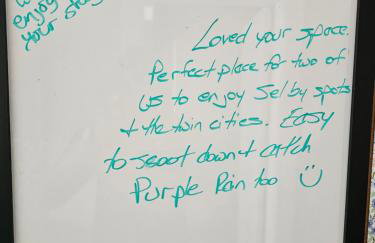 enjoy
your stay
Loved your space.
Perfect place for two of
us to enjoy Selby spots
+ the twin cities. Easy
to scoot down + catch
Purple Rain too